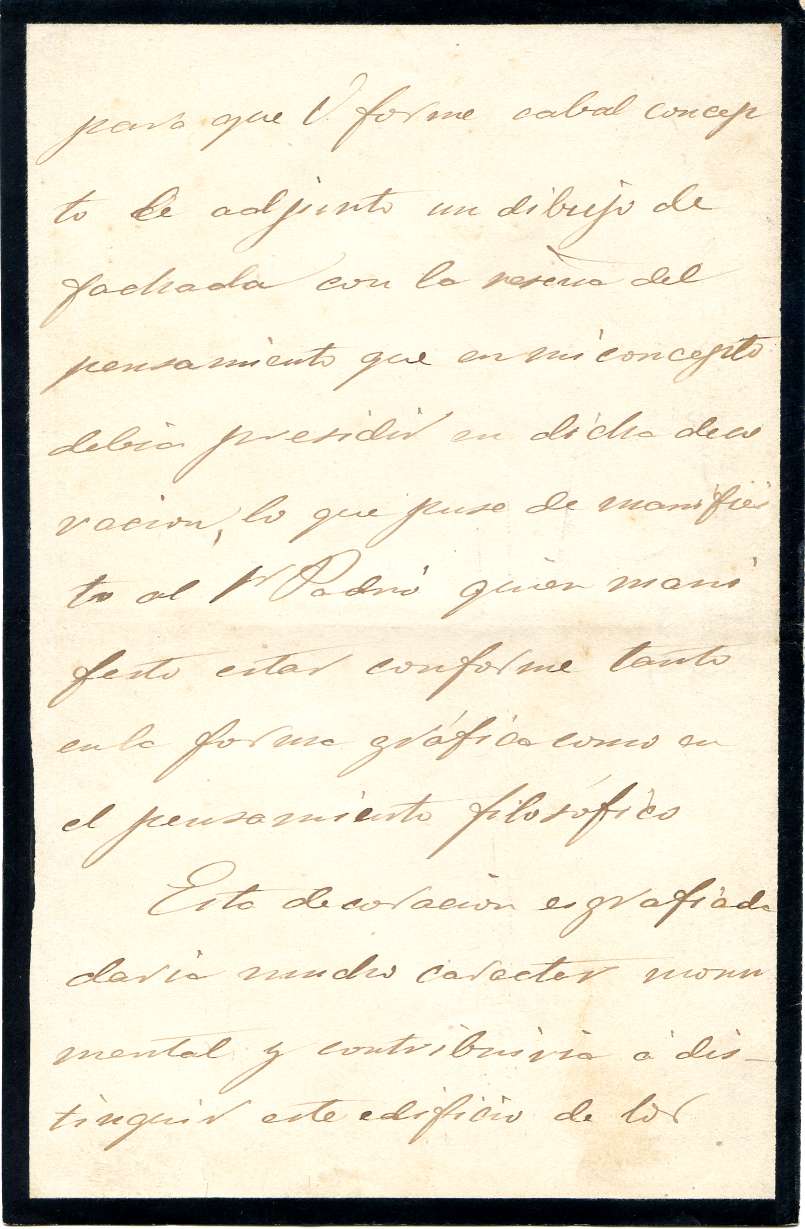 para que V. forme cabal concep
to le adjunto un dibujo de
fachada con la reseña del
pensamiento que en mi concepto
debia presidir en dicha deco
racion, lo que puse de manifies
to al Sr Padró quien mani
festo estar conforme tanto
en la forma gráfica como en
el pensamiento filosófico
Esta decoracion esgrafiada
daria mucho caracter monu
mental y contribuiria á dis-
tinguir este edificio de los